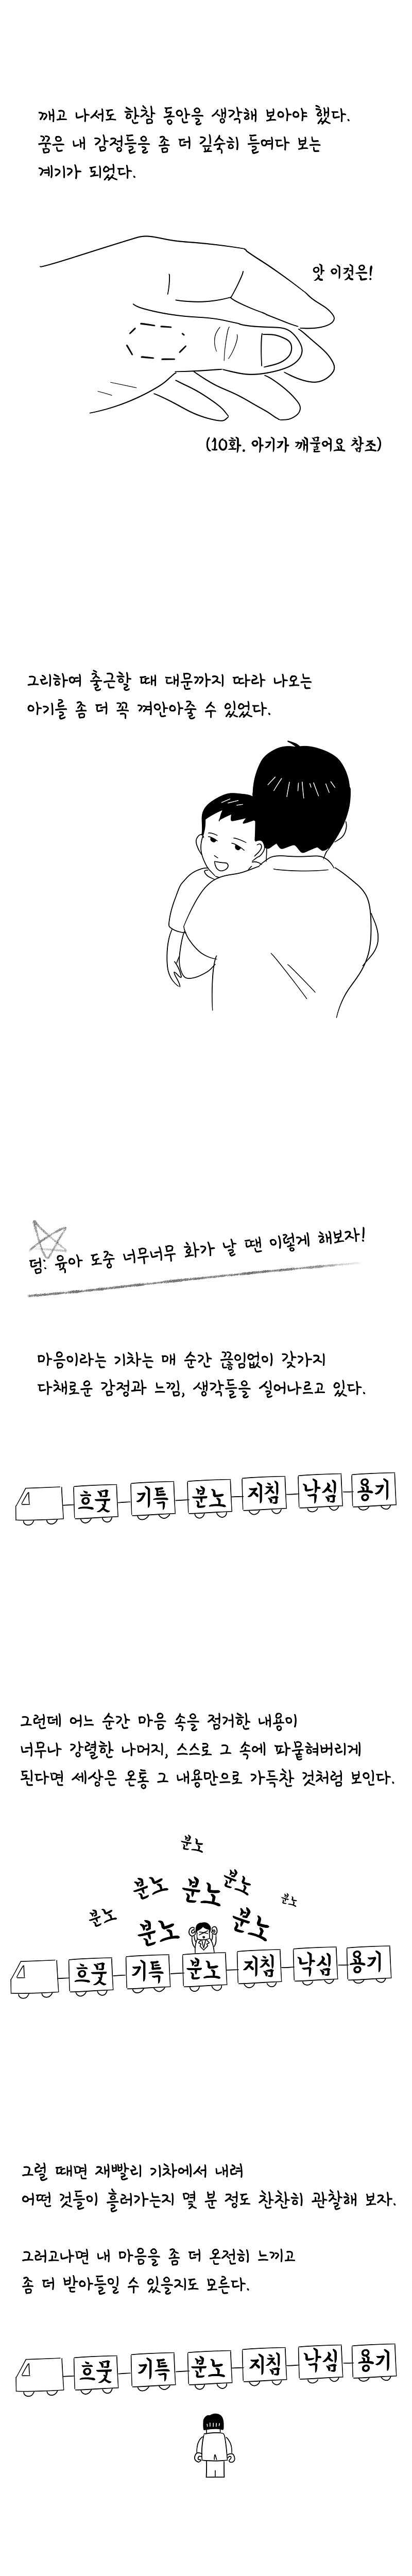 깨고 나서도 한참 동안을 생각해 보아야 했다.
꿈은 내 감정들을 좀 더 깊숙히 들여다 보는
계기가 되었다.
앗 이것은!
(10화. 아기가 깨물어요 참조)
그리하여 출근할 때 대문까지 따라 나오는
아기를 좀 더 꼭 껴안아줄 수 있었다.
덤: 육아 도중 너무너무 화가 날 땐 이렇게 해보자!
마음이라는 기차는 매 순간 끊임없이 갖가지
다채로운 감정과 느낌, 생각들을 실어나르고 있다.
흐뭇 기특 분노 지침 낙심 용기
그런데 어느 순간 마음 속을 점거한 내용이
너무나 강렬한 나머지, 스스로 그 속에 파묻혀버리게
된다면 세상은 온통 그 내용만으로 가득찬 것처럼 보인다.
분노
분노 분노 분노 분노
분노 분노 분노
흐뭇 기특 분노 지침 낙심 용기
그럴 때면 재빨리 기차에서 내려
어떤 것들이 흘러가는지 몇 분 정도 찬찬히 관찰해 보자.
그러고나면 내 마음을 좀 더 온전히 느끼고
좀 더 받아들일 수 있을지도 모른다.
흐뭇 기특 분노 지침 낙심 용기